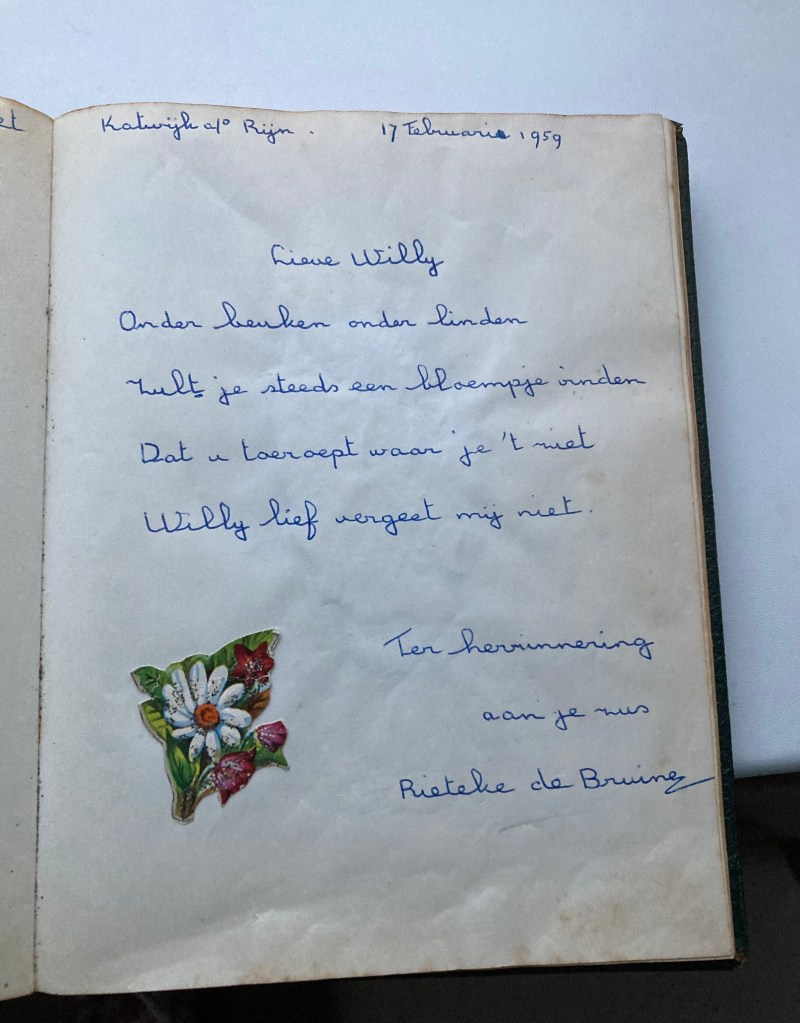 et
Katwijk a/o Rijn. 17 Februarie 1959
Lieve Willy
Onder beuken onder linden
Zult je steeds een bloempje vinden
Dat u toeroept waar je 't niet
Willy lief vergeet mij niet.
Ter herrinnering
aan je nus
Rieteke de Bruine